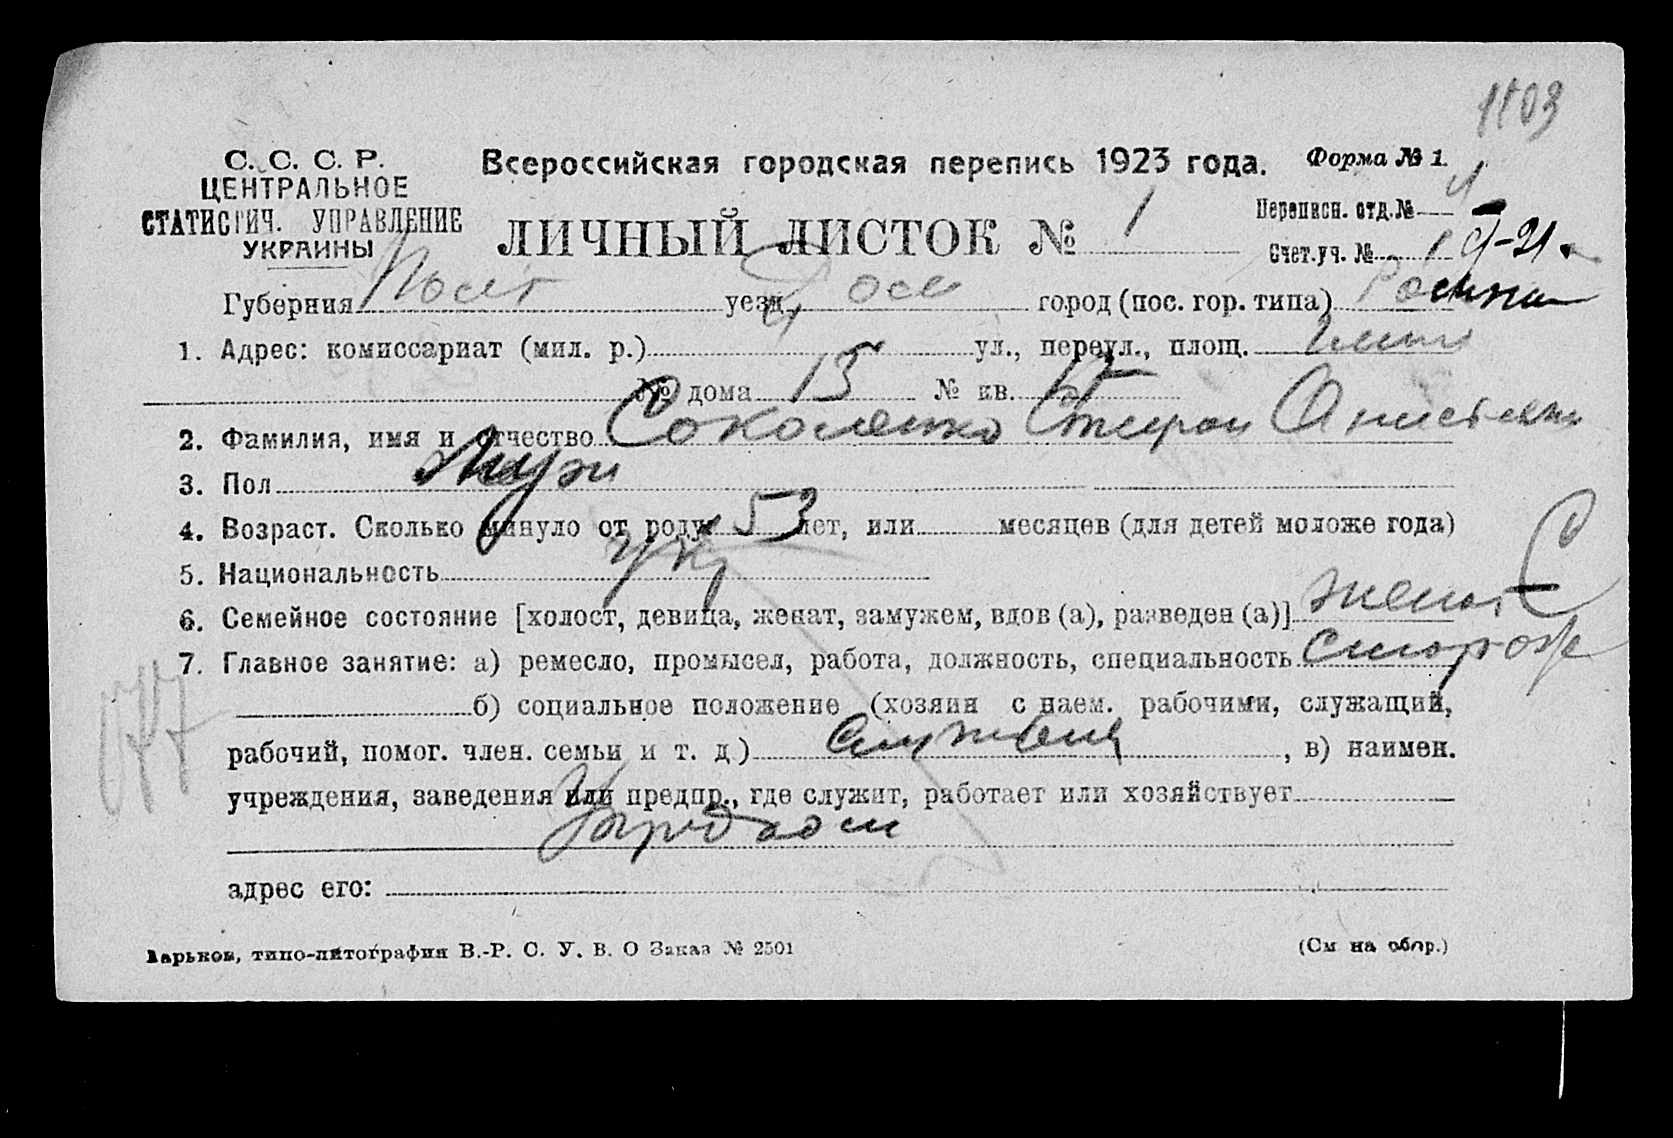 1103
С. С. С. Р.
ЦЕНТРАЛЬНОЕ
СТАТИСТИЧ. УПРАВЛЕНИЕ
УКРАИНЫ
Всероссийская городская перепись 1923 года.
Форма № 1.
ЛИЧНЫЙ ЛИСТОК № 1
Переписн. отд. №
Счет. уч. № 1
Губерния Полт уезд город (пос. гор. типа)
1. Адрес: комиссариат (мил. р.) ул., переул., площ.
№ дома 15 № кв.
2. Фамилия, имя и отчество Соколенко
3. Пол Муж
4. Возраст. Сколько минуло от роду 53 лет, или месяцев (для детей моложе года)
5. Национальность укр
6. Семейное состояние [холост, девица, женат, замужем, вдов (а), разведен (а)] женат
7. Главное занятие: а) ремесло, промысел, работа, должность, специальность сторож
б) социальное положение (хозяин с наем. рабочими, служащий,
рабочий, помог. член. семьи и т. д.) , в) наимен.
учреждения, заведения или предпр., где служит, работает или хозяйствует
адрес его:
Харьков, типо-литография В.-Р. С. У. В. О Заказ № 2501
(См на обор.)